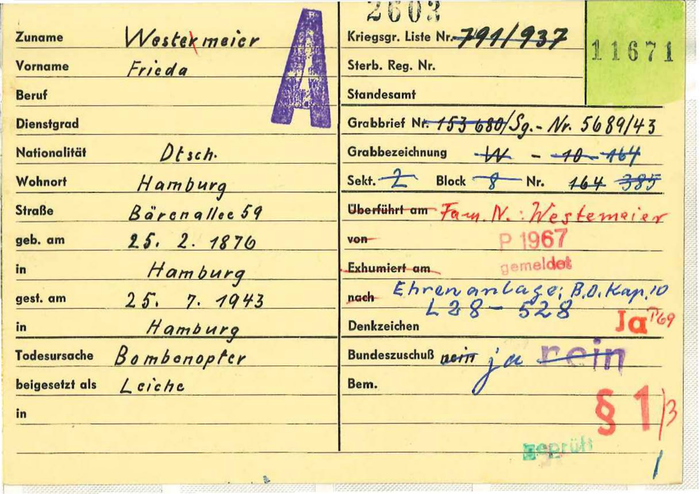 2603
11671
A
Zuname Westermeier
Vorname Frieda
Beruf
Dienstgrad
Nationalität Dtsch.
Wohnort Hamburg
Straße Bärenallee 59
geb. am 25. 2. 1876
in Hamburg
gest. am 25. 7. 1943
in Hamburg
Todesursache Bombenopfer
beigesetzt als Leiche
in
Kriegsgr. Liste Nr. 791/937
Sterb. Reg. Nr.
Standesamt
Grabbrief Nr. 153 680/Sg.-Nr. 5689/43
Grabbezeichnung W - 10 - 164
Sekt. 2 Block 8 Nr. 164 385
Überführt am Fam. N.: Westemeier
von P 1967
gemeldet
Exhumiert am
nach Ehrenanlage; B.O. Kap. 10
L 28 - 528
Denkzeichen Ja P69
Bundeszuschuß nein ja nein
Bem.
§ 1/3
geprüft